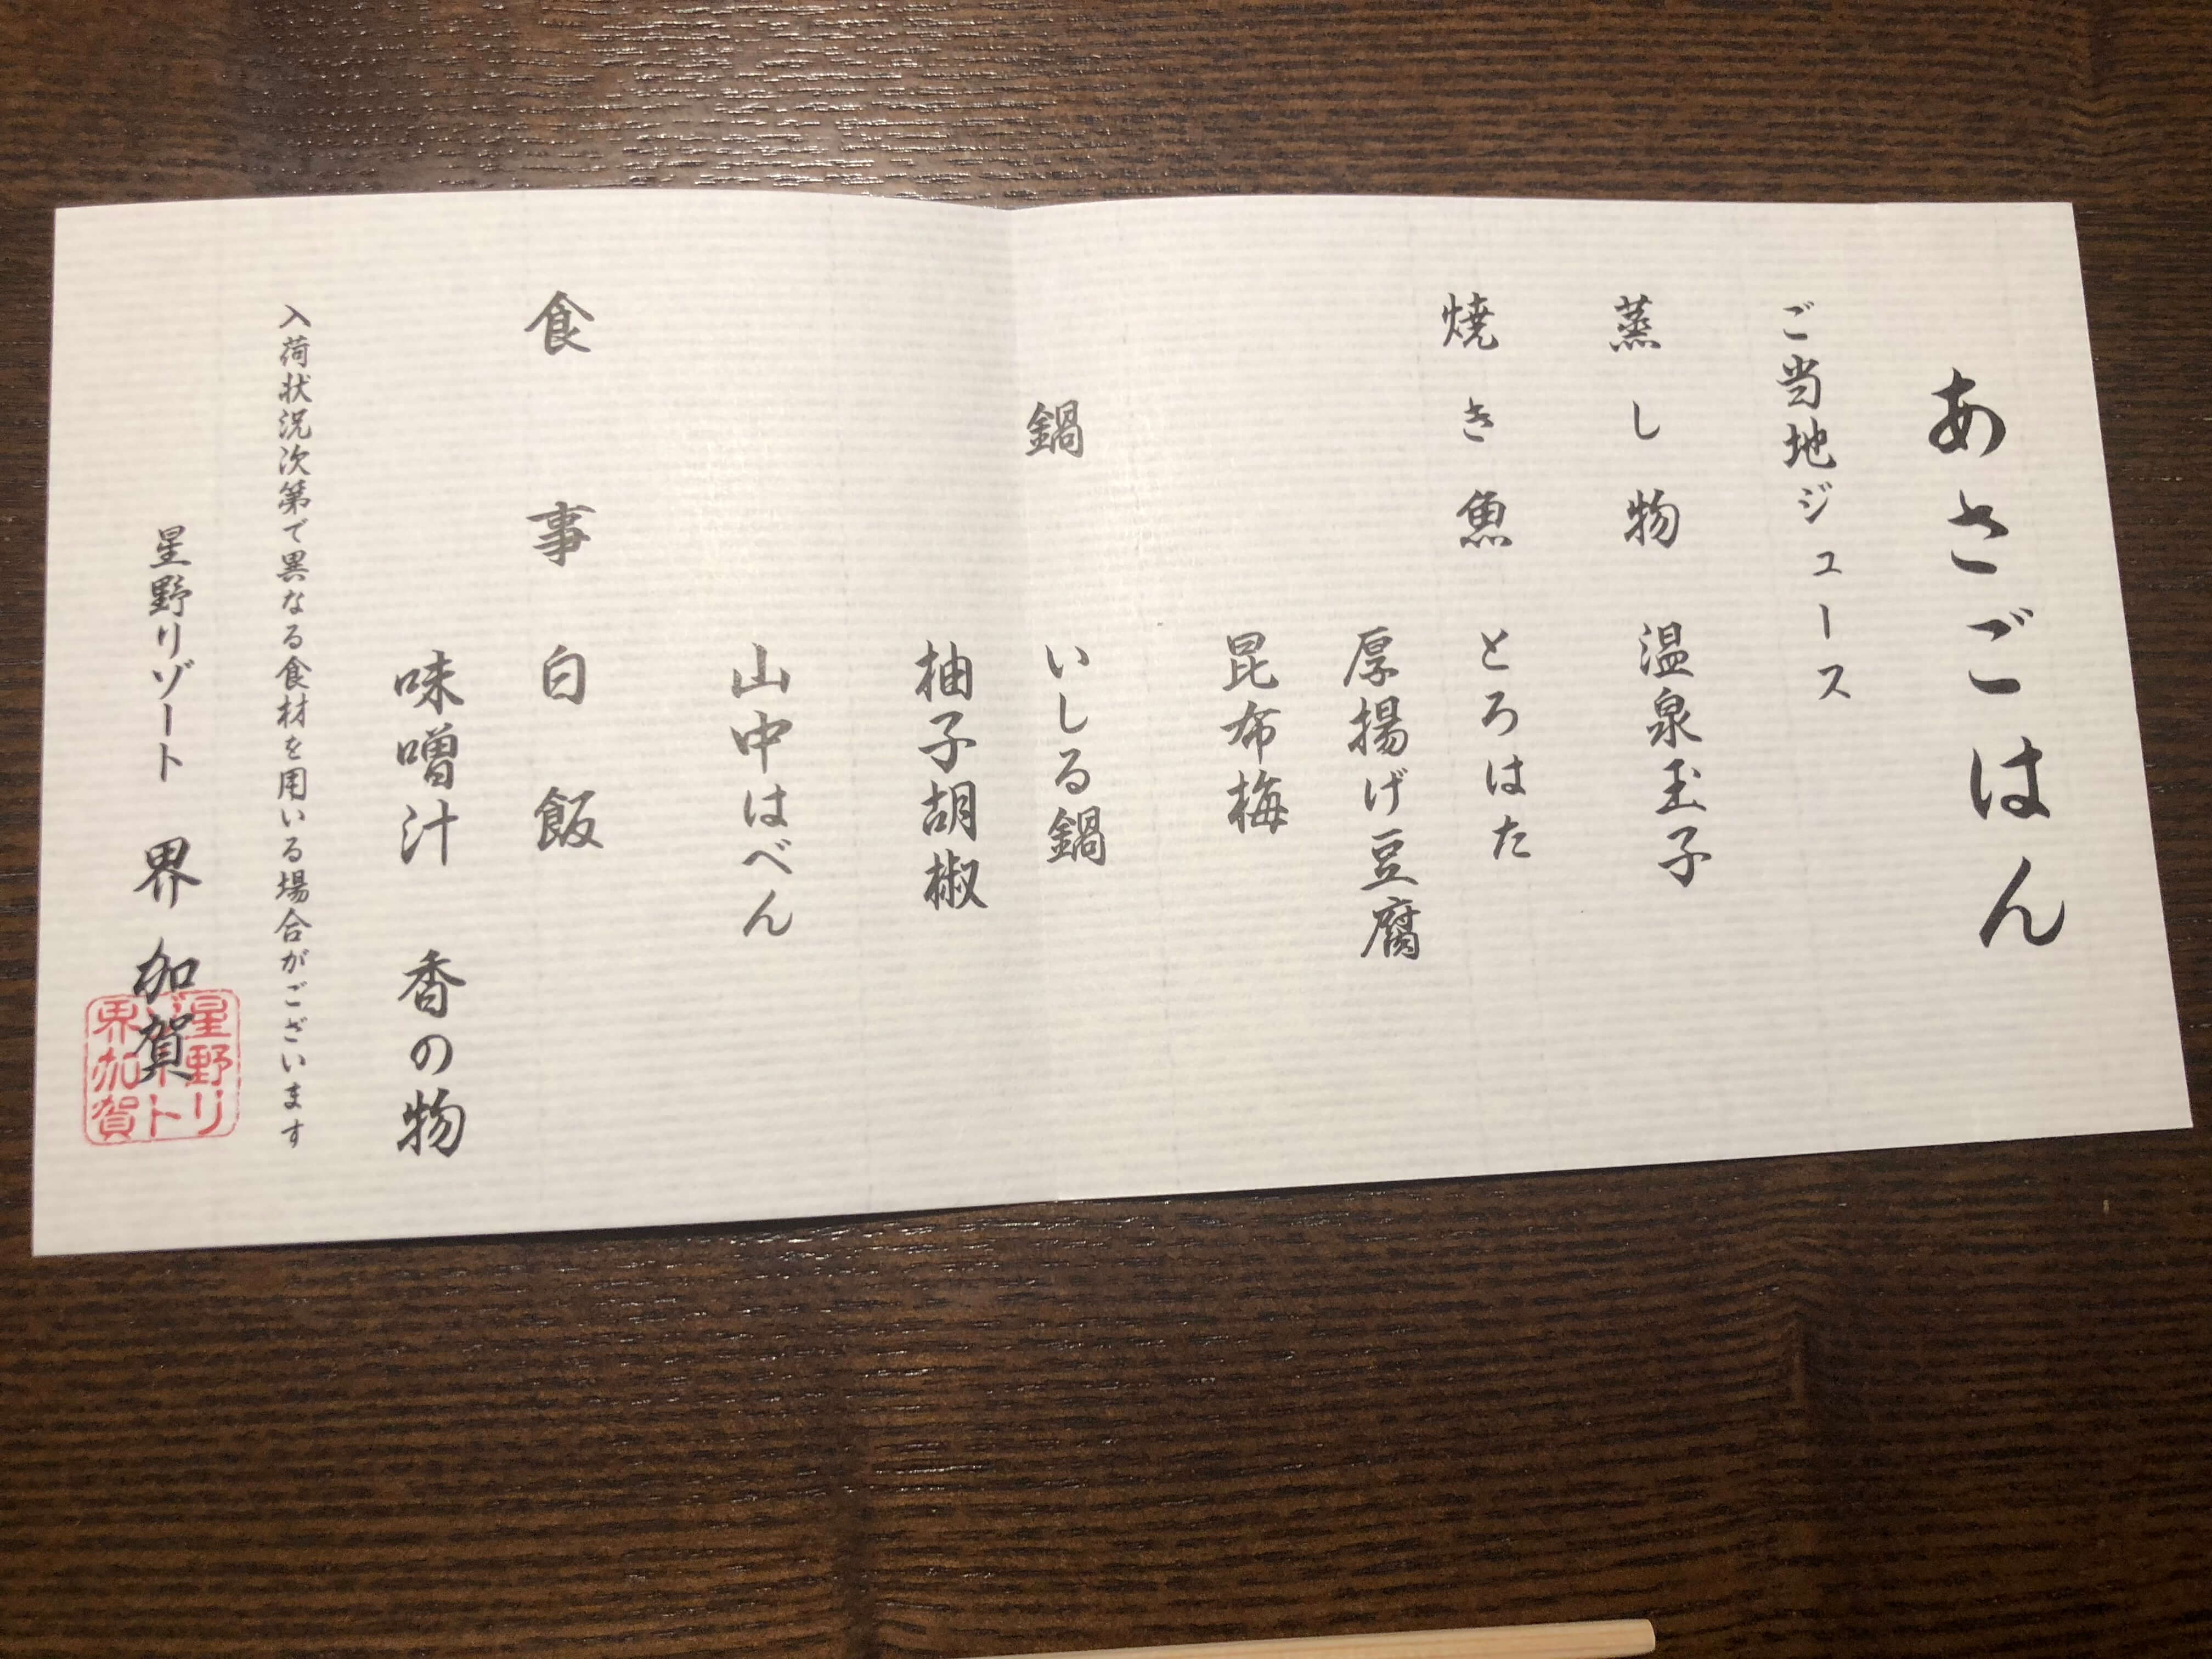 あさごはん
ご当地ジュース
蒸し物 温泉玉子
焼き魚 とろはた
厚揚げ豆腐
昆布梅
鍋 いしる鍋
柚子胡椒
山中はべん
食事 白飯
味噌汁 香の物
入荷状況次第で異なる食材を用いる場合がございます
星野リゾート 界 加賀
星野リ
ゾート
界加賀